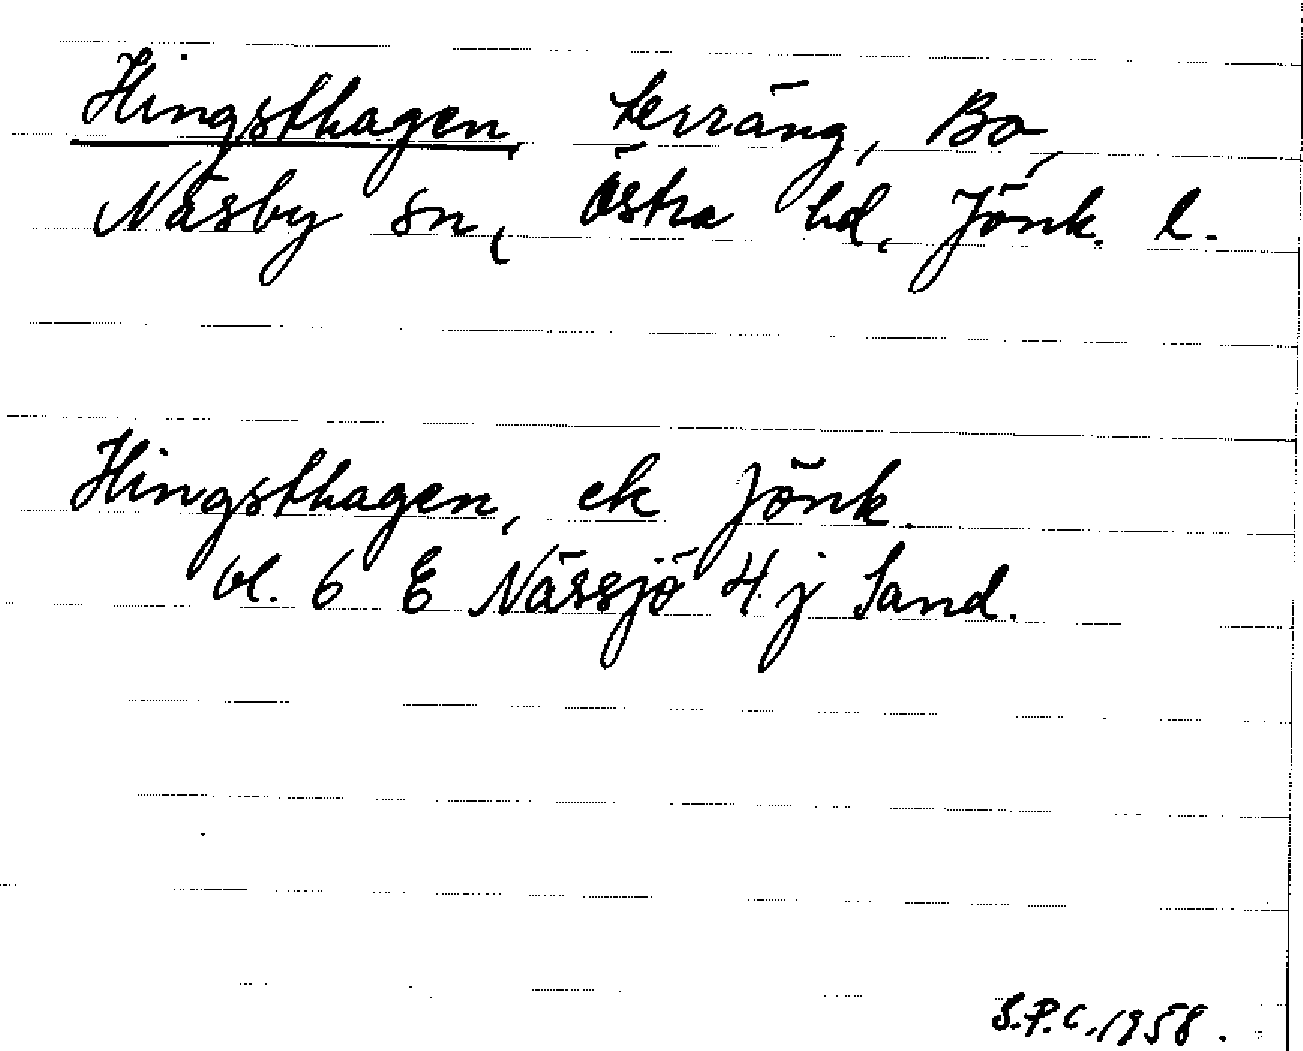 Hingsthagen, terräng, Bo,
Näsby sn, Östra hd, Jönk. l.
Hingsthagen, ek Jönk.
bl. 6 E Nässjö 4 j Sand.
S.P.C. 1958.